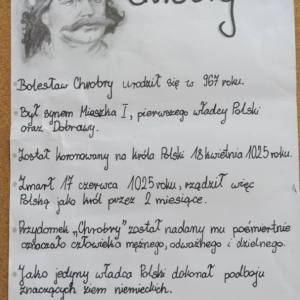 Chrobry
Bolesław Chrobry urodził się w 967 roku.
Był synem Mieszka I, pierwszego władcy Polski
oraz Dobrawy.
Został koronowany na króla Polski 18 kwietnia 1025 roku.
Zmarł 17 czerwca 1025 roku, rządził więc
Polską jako król przez 2 miesiące.
Przydomek „Chrobry" został nadany mu pośmiertnie
oznaczało człowieka mężnego, odważnego i dzielnego.
Jako jedyny władca Polski dokonał podboju
znaczących ziem niemieckich.